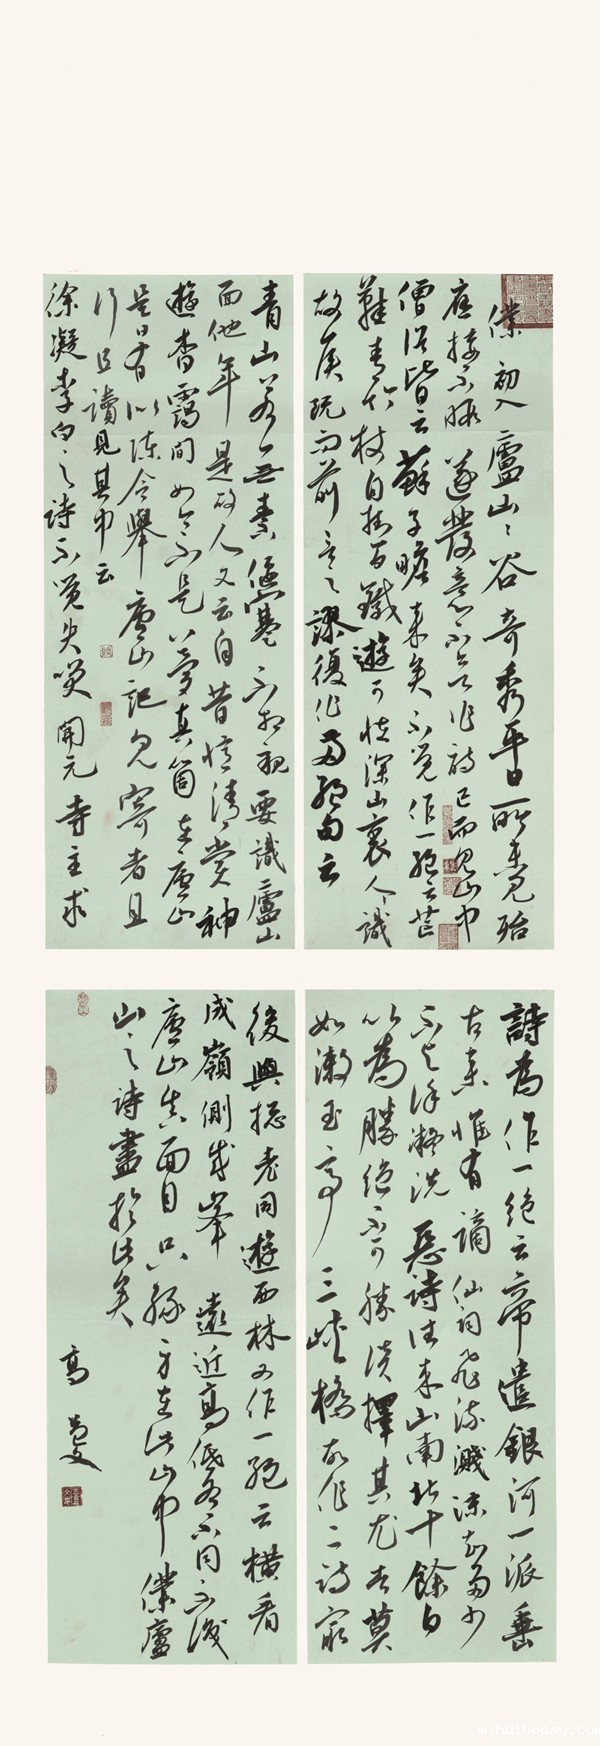 僕初入廬山々谷奇秀平日所未見殆
應接不暇遂發意不欲作詩已而見山中
僧俗皆云蘇子瞻來矣不覺作一絕云芒
鞋青竹杖自掛百錢遊可怪深山裏人々識
故侯既而前言之謬復作兩絕句云
青山若無素偃蹇不相親要識廬山
面他年是故人又云自昔憶清賞神
遊杳靄間如今不是夢真箇在廬山
是日有以陳令舉廬山記見寄者且
行且讀見其中云
徐凝李白之詩不覺失笑開元寺主求
詩為作一絕云帝遣銀河一派垂
古來惟有謫仙詞飛流濺沫知多少
不與徐凝洗惡詩往來山南北十餘日
以為勝絕不可勝談擇其尤者莫
如漱玉亭三峽橋故作二詩最
後與揔老同遊西林又作一絕云橫看
成嶺側成峯遠近高低各不同不識
廬山真面目只緣身在此山中僕廬
山之詩盡於此矣
高
m.huibopay.com